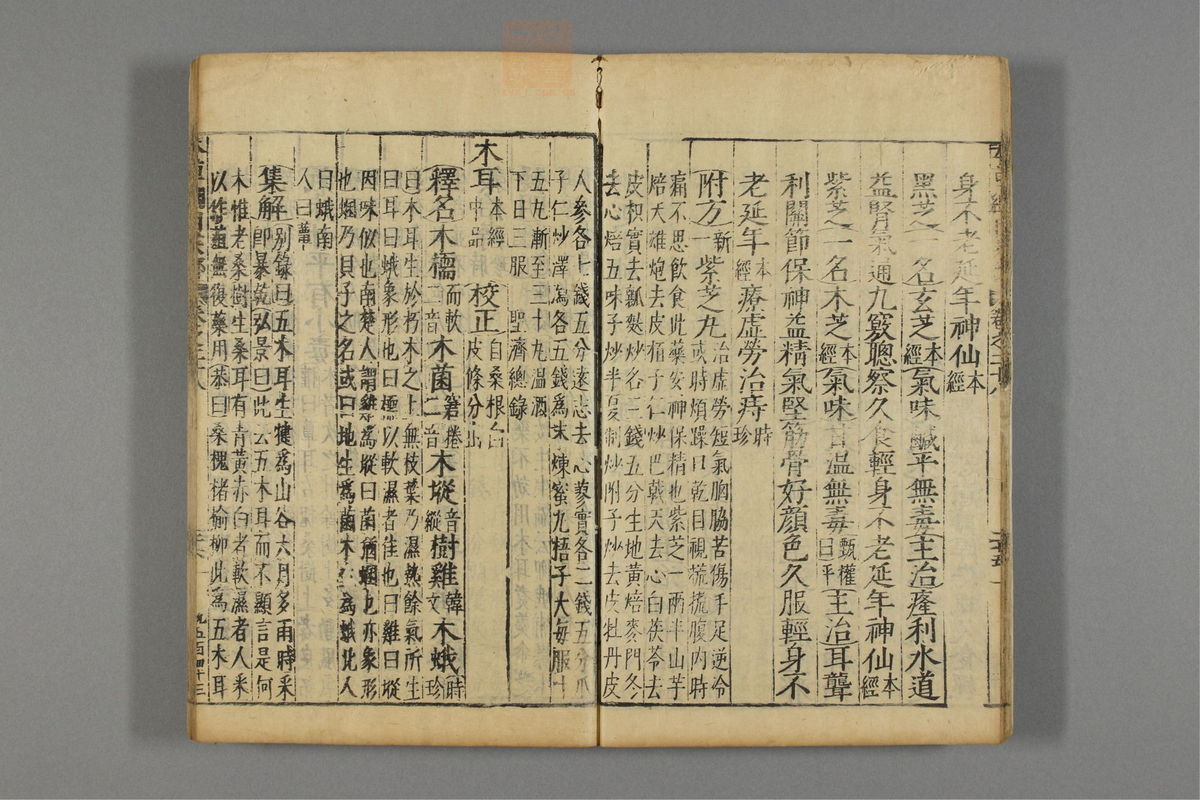 身不老延年神仙本經
黑芝一名玄芝本經氣味鹹平無毒主治癃利水道
益腎氣通九竅聰察久食輕身不老延年神仙本經
紫芝一名木芝本經氣味甘溫無毒甄權曰平主治耳聾
利關節保神益精氣堅筋骨好顏色久服輕身不
老延年本經療虛勞治痔時珍
附方新一紫芝丸治虛勞短氣胸脇苦傷手足逆冷
或時煩躁口乾目視𥆨𥆨腹內時
痛不思飲食此藥安神保精也紫芝一兩半山芋
焙天雄炮去皮栢子仁炒巴戟天去心白茯苓去
皮枳實去瓤麩炒各三錢五分生地黃焙麥門冬
去心焙五味子炒半夏制炒附子炒去皮牡丹皮
人參各七錢五分遠志去心蓼實各二錢五分瓜
子仁炒澤瀉各五錢爲末煉蜜丸梧子大每服十
五丸漸至三十丸溫酒
下日三服 聖濟總錄
木耳本經中品 校正自桑根白皮條分出
釋名木檽而軟二音木菌窘捲二音木㙡音縱樹雞韓文木蛾時珍
曰木耳生於朽木之上無枝葉乃濕熱餘氣所生
曰耳曰蛾象形也曰檽以軟濕者佳也曰雞曰㙡
因味似也南楚人謂雞爲㙡曰菌猶蜠也亦象形
也蜠乃貝子之名或曰地生爲菌木生爲蛾北人
曰蛾南
人曰蕈
集解別錄曰五木耳生犍爲山谷六月多雨時采
卽暴乾弘景曰此云五木耳而不顯言是何
木惟老桑樹生桑耳有青黃赤白者軟濕者人采
以作葅無復藥用恭曰桑槐楮榆柳此爲五木耳